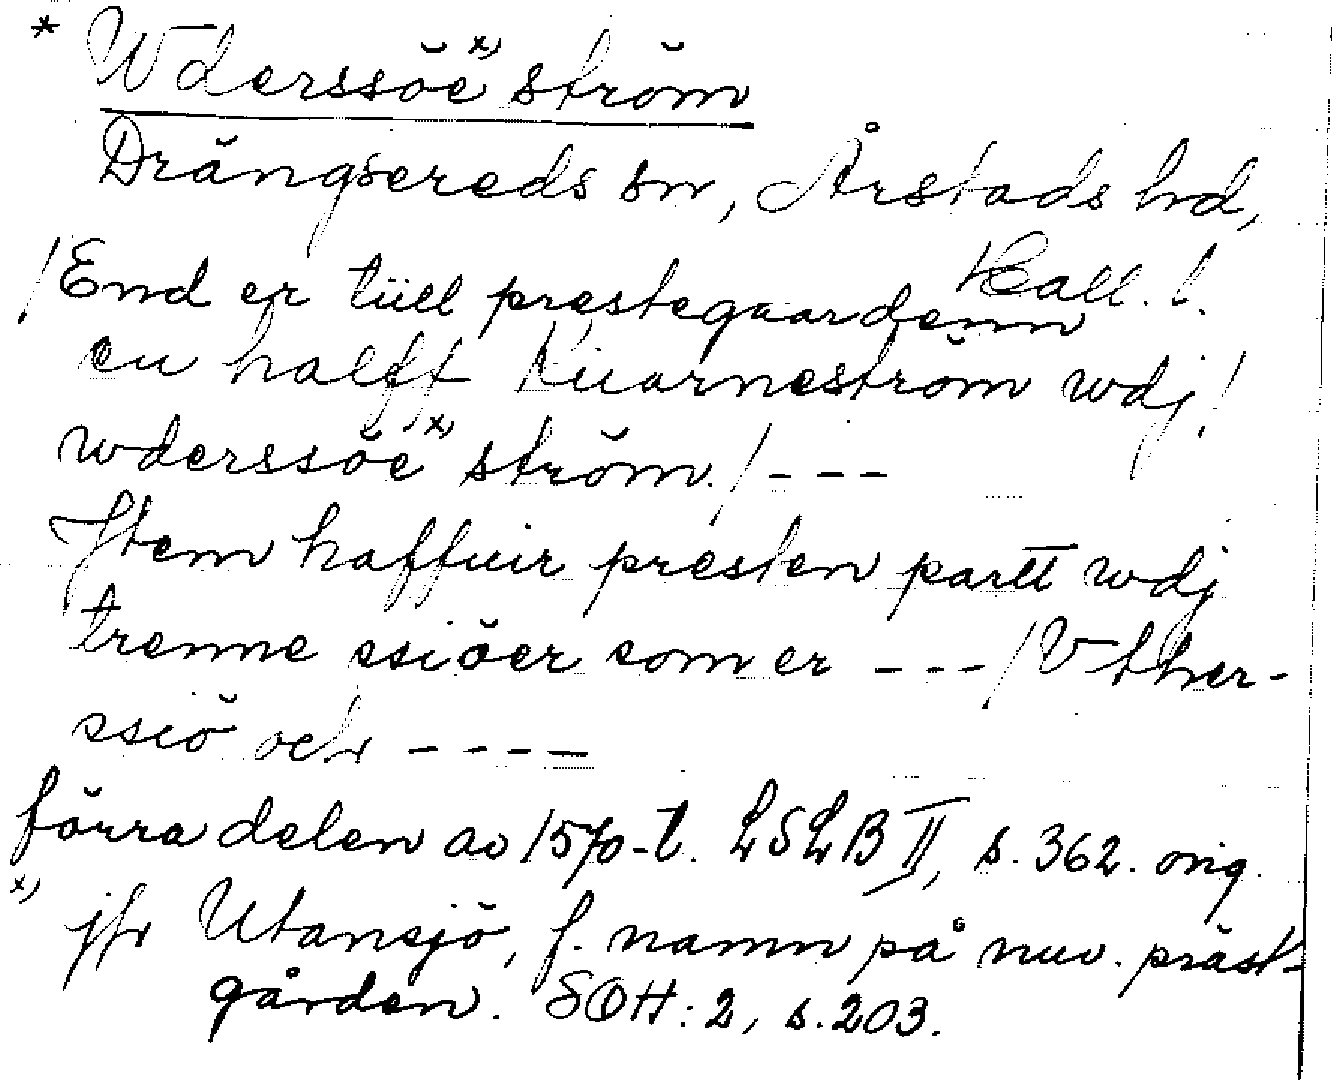 * Wderssöe x) ström
Drängsereds sn, Årstads hd,
Hall. l.
/End er tüll prestegaardenn
en halfft kuarneström wdj!
wderssöe x) ström./ - - -
Item haffuir presten partt wdj
trenne ssiöer som er - - - /Vther-
ssiö och - - - -
förra delen av 1570-t. LSLB II, s. 362. orig.
x) jfr Utansjö, f. namn på nuv. präst-
gården. SOH: 2, s. 203.